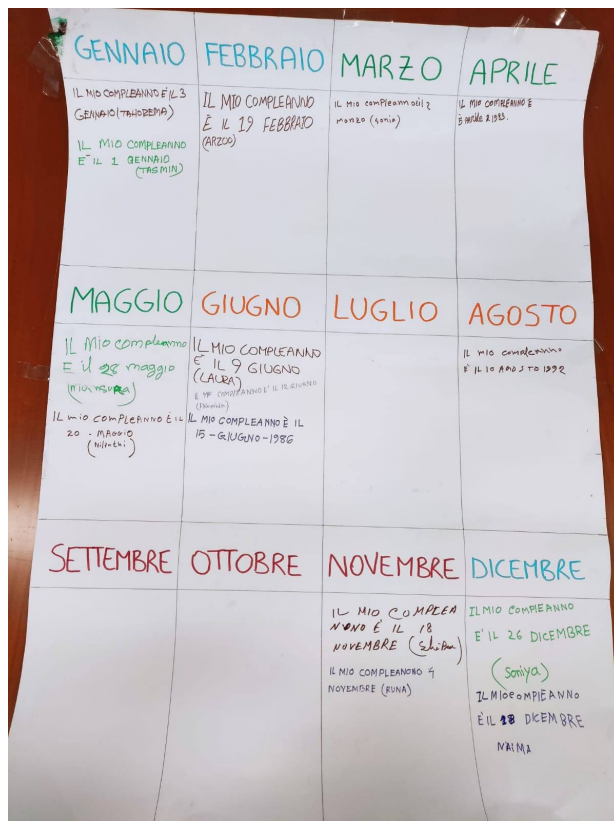 GENNAIO
IL MIO COMPLEANNO È IL 3
GENNAIO (TAHOREMA)
IL MIO COMPLEANNO
E' IL 1 GENNAIO
(TASMIN)
FEBBRAIO
IL MIO COMPLEANNO
È IL 19 FEBBRAIO
(ARZOO)
MARZO
IL Mio compleanno è il 2
marzo (sonia)
APRILE
IL MIO COMPLEANNO È
Aprile 2 1983.
MAGGIO
IL Mio compleanno
E il 28 maggio
(mansura)
IL mio COMPLEANNO È IL
20 - MAGGIO
(Nilanthi)
GIUGNO
IL MIO COMPLEANNO
È IL 9 GIUGNO
(LAURA)
IL MIO COMPLEANNO E' IL 12 GIUGNO
IL MIO COMPLEANNO È IL
15-GIUGNO-1986
LUGLIO
AGOSTO
IL mio compleanno
È IL 10 AGOSTO 1992
SETTEMBRE
OTTOBRE
NOVEMBRE
IL MIO COMPLEA
NNO È IL 18
NOVEMBRE
IL MIO COMPLEANONO 4
NOVEMBRE (RUNA)
DICEMBRE
IL MIO COMPLEANNO
E' IL 26 DICEMBRE
(Soniya)
IL MIO COMPIEANNO
È IL 18 DICEMBRE
NAIMA